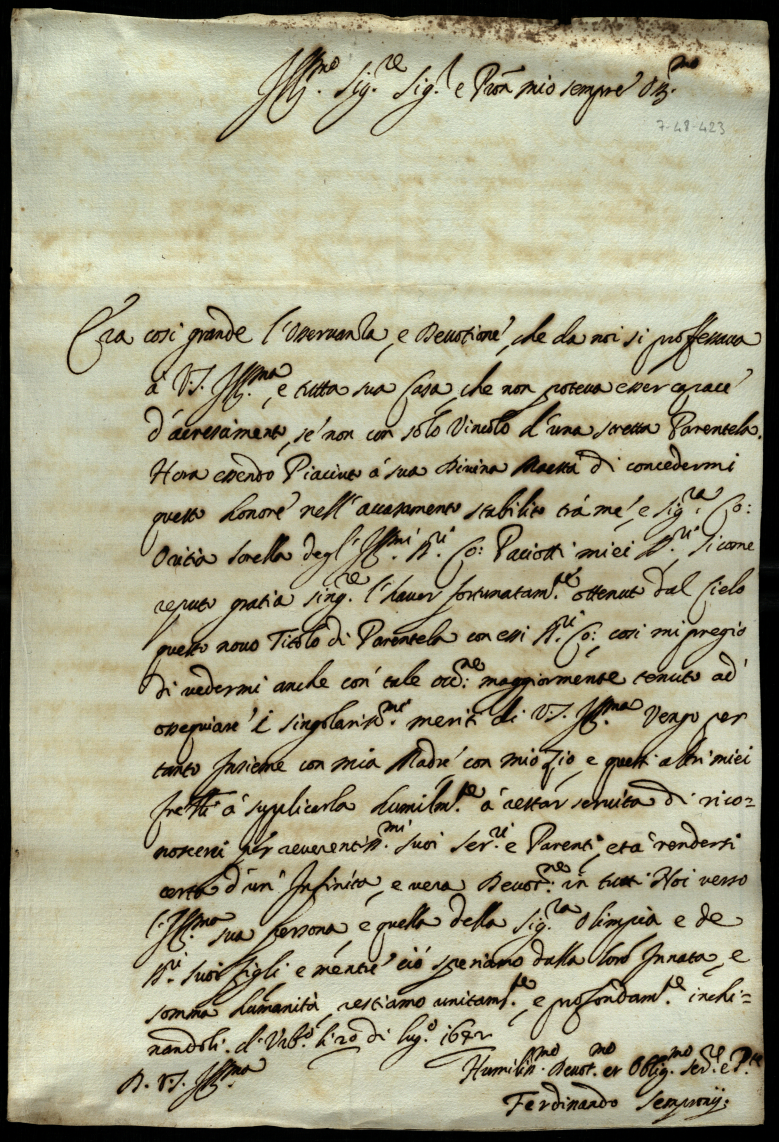 Ill.mo Sig.re Sig.r e Pron mio sempre Oss.mo
7-48-423
Era cosi grande l'Osservanza, e Devotione, che da noi si professava
à V.S. Ill.ma, e tutta sua Casa, che non poteva esser capace
d'accrescimento, se non con solo Vincolo d'una stretta Parentela.
Hora essendo Piaciuto à sua Divina Maestà di concedermi
questo honore nell'accasamento stabilito trà me, e Sig.ra Co:
Oritia sorella degl'Ill.mi SS.ri Co: Paciotti miei SS.ri, sicome
reputo gratia sing.re l'haver fortunatam.te ottenuto dal Cielo
questo novo Titolo di Parentela con essi SS.ri Co: cosi mi pregio
di vedermi anche con tale occ.ne maggiormente tenuto ad
ossequiare i singolariss.mi meriti di V.S. Ill.ma Vengo per
tanto Insieme con mia Madre con mio Zio, e questi altri miei
fr̃elli à supplicarla humilm.te à restar servita di rico=
noscerci per reverentiss.mi suoi Ser.ri e Parenti, et à rendersi
certa d'un'Infinita, e vera Devot.ne in tutti Noi verso
l'Ill.ma sua persona e quella della Sig.ra Olimpia e de
SS.ri suoi figli e mentre ciò speriamo dalla loro Innata, e
somma humanità, restiamo unitam.te, e profondam.te inchi=
nandoli. d'Urb.o li 20 di lug.o 1672
D. V.S. Ill.ma
Humiliss.mo Devot.mo et Oblig.mo Ser.re e P.te
Ferdinando Sempronij